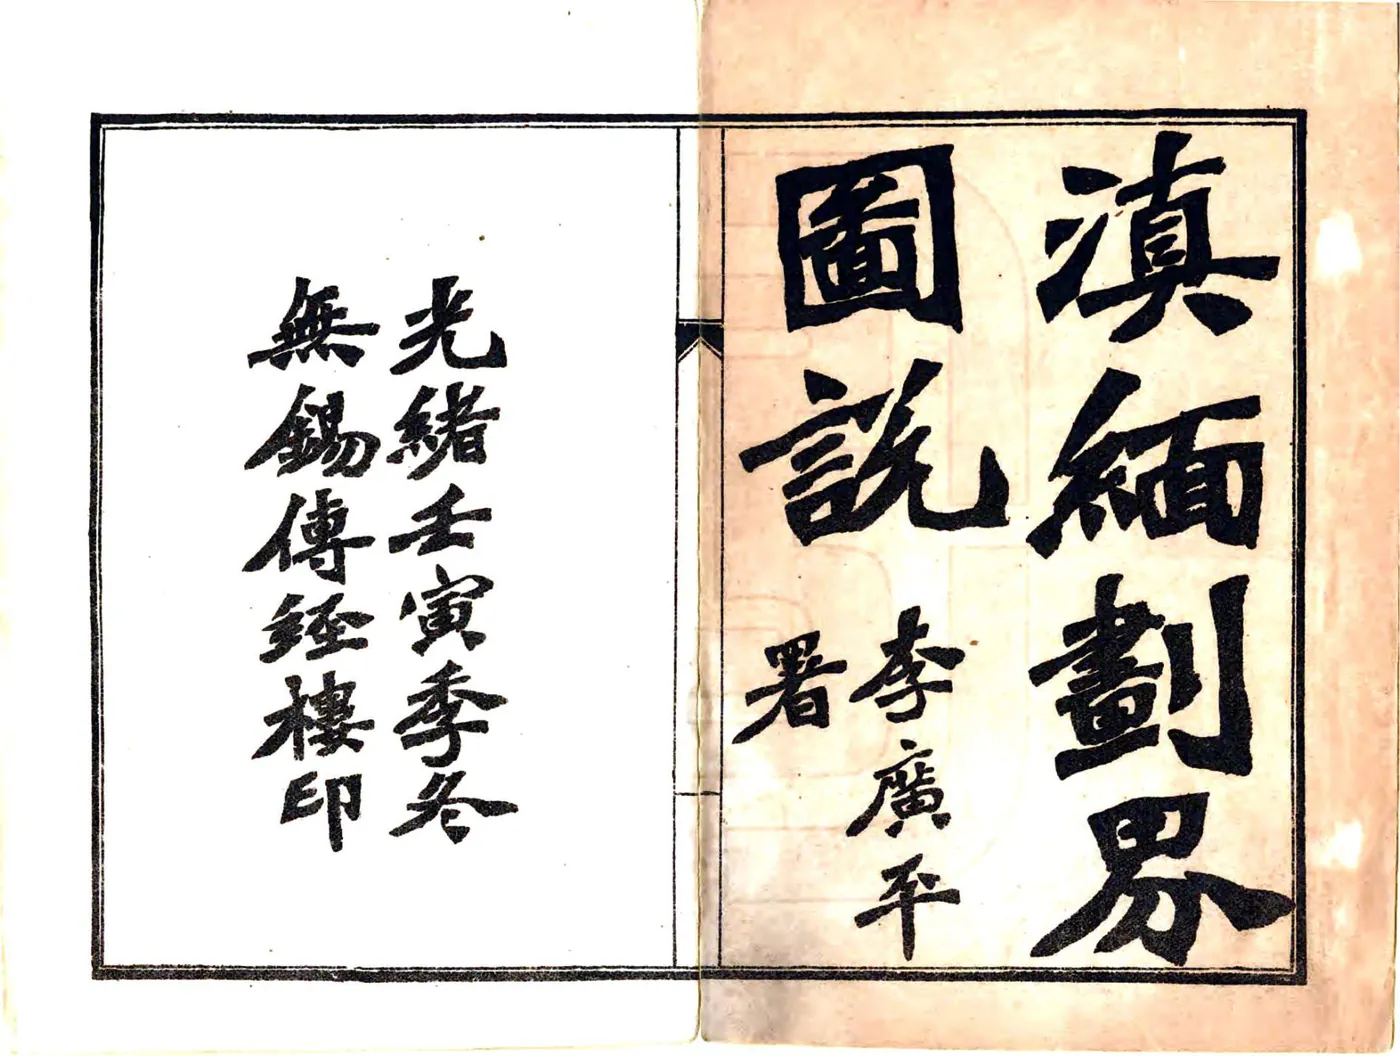 滇緬劃界
圖説
李廣平
署
光緒壬寅季冬
無錫傳經樓印